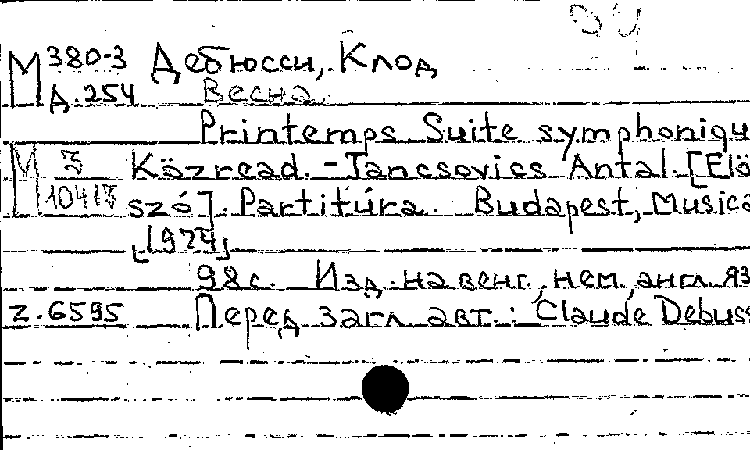 М 380-3 Дебюсси, Клод
Д.254 Весна.
Printemps. Suite symphoniqu
М З Közread. - Jancsovics Antal. [Elö
10413 szó]. Partitúra. Budapest, Musica
[1974]
98 с. Изд. на венг., нем., англ. яз
Z.6595 Перед загл. авт.: Claude Debuss